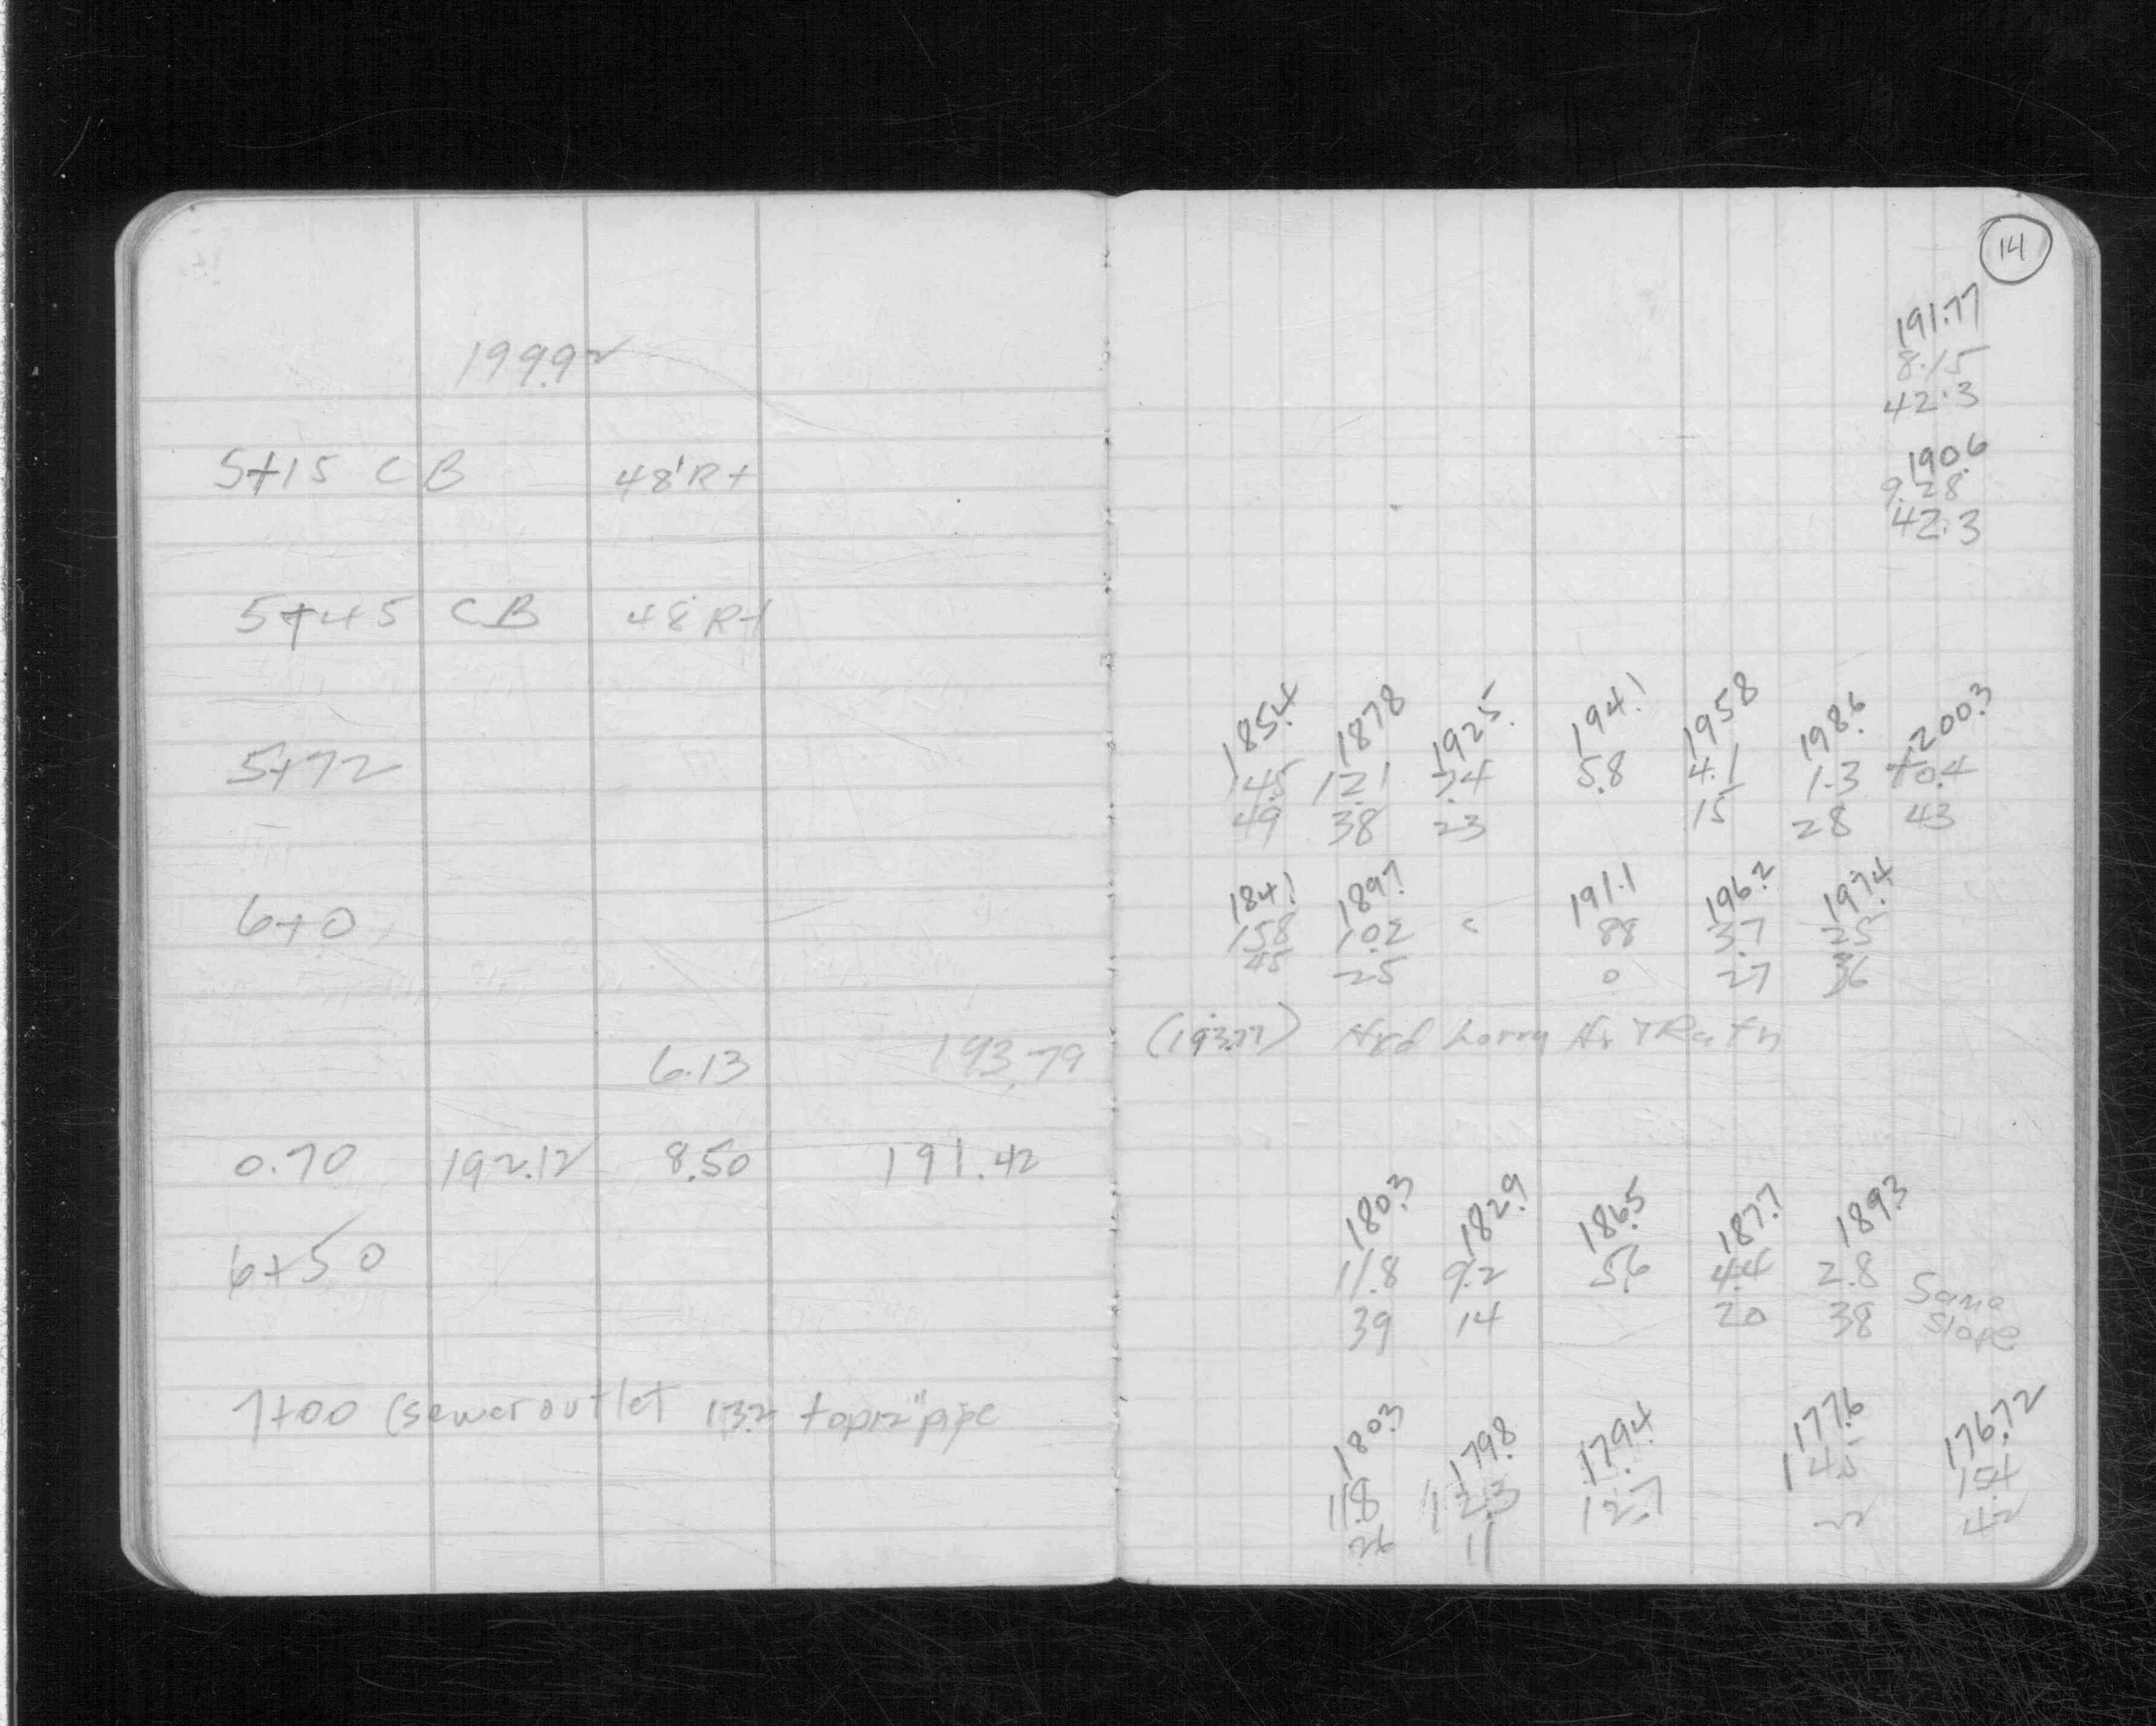 14
199.92
191.77
8.15
42.3
5+15 CB 48' Rt
190.6
9.28
42.3
5+45 CB 48' Rt
185.4 187.8 192.5 194.1 195.8 198.6 200.3
5+72 14.5 12.1 7.4 5.8 4.1 1.3 +0.4
49 38 23 15 28 43
184.1 189.7 191.1 196.2 197.4
6+0 15.8 10.2 c 8.8 3.7 2.5
45 25 0 27 36
6.13 193.79 (193.77) Hyd
0.70 192.12 8.50 191.42
180.3 182.9 186.5 187.7 189.3
6+50 11.8 9.2 5.6 4.4 2.8 Same
39 14 20 38 Slope
7+00 (sewer outlet 13.2 top 12" pipe
180.3 179.8 179.4 177.6 176.72
11.8 12.3 12.7 14.5 15.4
26 11 22 42